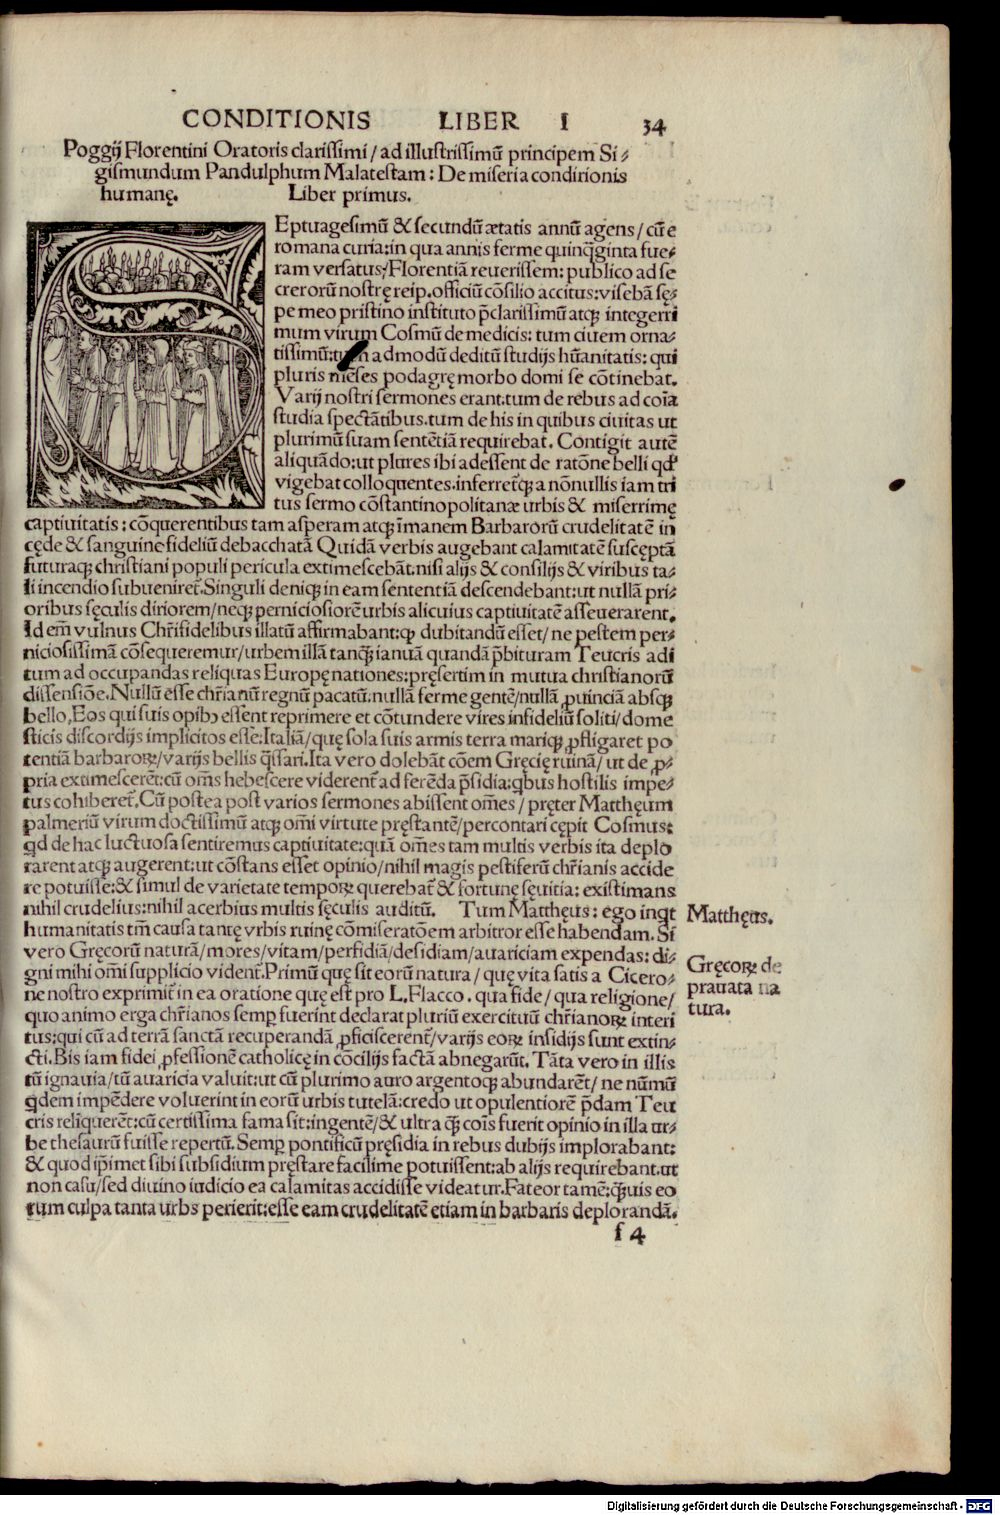 CONDITIONIS LIBER I 34
Poggij Florentini Oratoris clarissimi / ad illustrissimũ principem Si⸗
gismundum Pandulphum Malatestam : De miseria conditionis
humanę. Liber primus.
Eptuagesimũ & secundũ ætatis annũ agens / cũ e
romana curia: in qua annis ferme quinq̃ginta fue⸗
ram versatus / Florentiã reuerissem: publico ad se
cretorũ nostrę reip. officiũ cõsilio accitus: visebã sę⸗
pe meo pristino instituto p̃clarissimũ atqꝫ integerri
mum virum Cosmũ de medicis: tum ciuem orna⸗
tissimũ: tum admodũ deditũ studijs hũanitatis: qui
pluris mẽses podagrę morbo domi se cõtinebat.
Varij nostri sermones erant. tum de rebus ad coĩa
studia spectãtibus. tum de his in quibus ciuitas ut
plurimũ suam sentẽtiã requirebat. Contigit autẽ
aliquãdo: ut plures ibi adessent de ratõne belli qđ
vigebat colloquentes. inferret̃qꝫ a nõnullis iam tri
tus sermo cõstantinopolitanæ urbis & miserrimę
captiuitatis : cõquerentibus tam asperam atqꝫ ĩmanem Barbarorũ crudelitatẽ in
cęde & sanguine fideliũ debacchatã Quidã verbis augebant calamitatẽ suscęptã
futuraqꝫ christiani populi pericula extimescebãt. nisi alijs & consilijs & viribus ta⸗
li incendio subueniret̃. Singuli deniqꝫ in eam sententiã descendebant: ut nullã pri⸗
oribus sęculis diriorem / neqꝫ perniciosiorẽ urbis alicuius captiuitatẽ asseuerarent.
Id em̃ vulnus Chr̃ifidelibus illatũ affirmabant: qꝫ dubitandũ esset / ne pestem per⸗
niciosissimã cõsequeremur / urbem illã tanqꝫ̃ ianuã quandã p̃bituram Teucris adi
tum ad occupandas reliquas Europę nationes: pręsertim in mutua christianorũ
dissensiõe. Nullũ esse chr̃ianũ regnũ pacatũ: nullã ferme gentẽ / nullã ꝓuinciã absqꝫ
bello. Eos qui suis opibꝫ essent reprimere et cõtundere vires infideliũ soliti / dome
sticis discordijs implicitos esse: Italiã / quę sola suis armis terra mariqꝫ ꝓfligaret po
tentiã barbaroꝝ / varijs bellis q̃ssari. Ita vero dolebãt cõem Gręcię ruinã / ut de ꝓ⸗
pria extimescerẽt: cũ om̃s hebescere viderent̃ ad ferẽda p̃sidia: qbus hostilis impe⸗
tus cohiberet̃. Cũ postea post varios sermones abissent om̃es / pręter Matthęum
palmeriũ virum doctissimũ atqꝫ om̃i virtute pręstantẽ / percontari cępit Cosmus:
qd de hac luctuosa sentiremus captiuitate: quã om̃es tam multis verbis ita deplo
rarent atqꝫ augerent: ut cõstans esset opinio / nihil magis pestiferũ chr̃ianis accide
re potuisse: & simul de varietate tempoꝝ querebat̃ & fortunę sęuitia: existimans
nihil crudelius: nihil acerbius multis sęculis auditũ. Tum Matthęus: ego inqt
humanitatis tm̃ causa tantę vrbis ruinę cõmiseratõem arbitror esse habendam. Si
vero Gręcorũ naturã / mores / vitam / perfidiã / desidiam / auariciam expendas: di⸗
gni mihi om̃i supplicio vident̃. Primũ quę sit eorũ natura / quę vita satis a Cicero⸗
ne nostro exprimit̃ in ea oratione quę est pro L. Flacco. qua fide / qua religione /
quo animo erga chr̃ianos semꝑ fuerint declarat pluriũ exercituũ chr̃ianoꝝ interi
tus: qui cũ ad terrã sanctã recuperandã ꝓficiscerent̃ / varijs eoꝝ insidijs sunt extin⸗
cti. Bis iam fidei ꝓfessionẽ catholicę in cõcilijs factã abnegarũt. Tãta vero in illis
tũ ignauia / tũ auaricia valuit: ut cũ plurimo auro argentoqꝫ abundarẽt / ne nũmũ
qdem impẽdere voluerint in eorũ urbis tutelã: credo ut opulentiorẽ p̃dam Teu
cris relĩquerẽt: cũ certissima fama sit: ingentẽ / & ultra qꝫ̃ coĩs fuerit opinio in illa ur⸗
be thesaurũ fuisse repertũ. Semꝑ pontificũ pręsidia in rebus dubijs implorabant:
& quod ip̃imet sibi subsidium pręstare facilime potuissent: ab alijs requirebant. ut
non casu / sed diuino iudicio ea calamitas accidisse videatur. Fateor tamẽ: qꝫ̃uis eo
rum culpa tanta urbs perierit: esse eam crudelitatẽ etiam in barbaris deplorandã.
f 4
Matthęus.
Gręcoꝝ de
prauata na
tura.
Digitalisierung gefördert durch die Deutsche Forschungsgemeinschaft - DFG